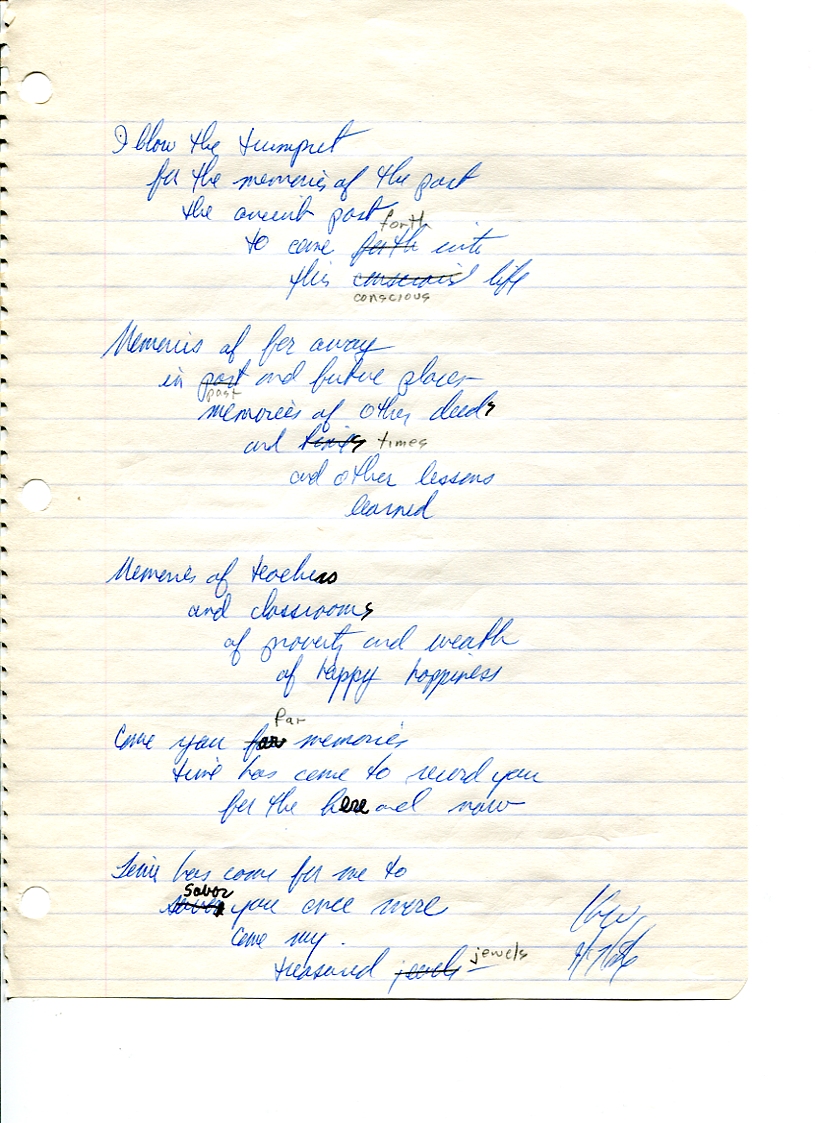 I blow the trumpet
for the memories of the past
the ancient past
forth
to come forth into
this conscious life
conscious
Memories of far away
in past and future places
past
memories of other deeds
and times times
and other lessons
learned
Memories of teachers
and classrooms
of poverty and wealth
of happy happiness
far
Come you far memories
time has come to record you
for the here and now
Time has come for me to
Savor
savor you once more
Come my
treasured jewels jewels